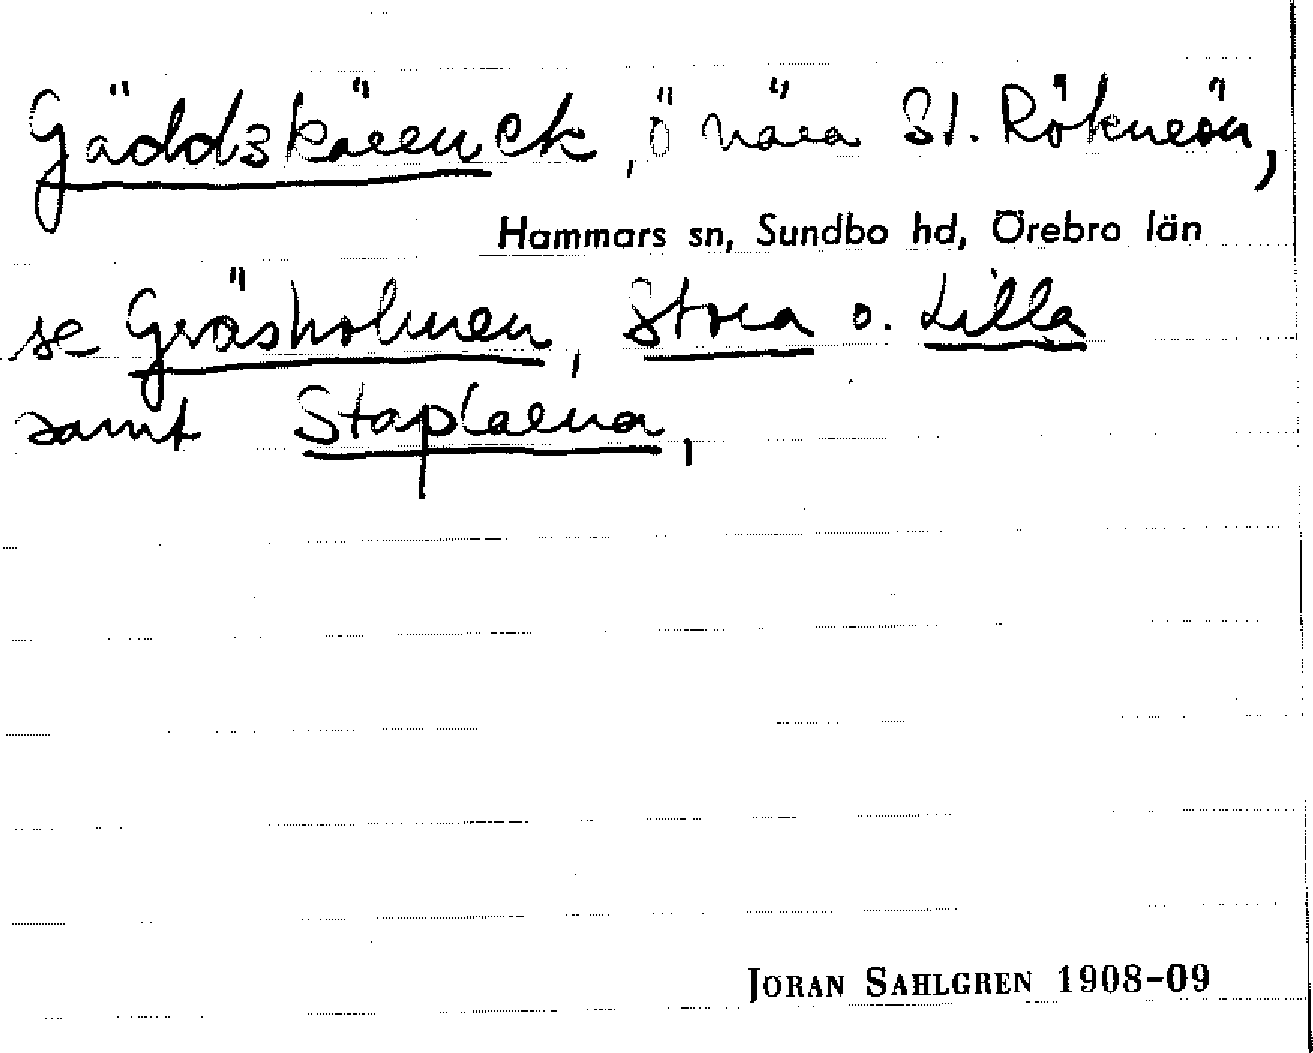 Gäddskären ek, ö nära St. Rökneön,
Hammars sn, Sundbo hd, Örebro län
se Gräsholmen, Stora o. Lilla
samt Staplarna,
JÖRAN SAHLGREN 1908-09